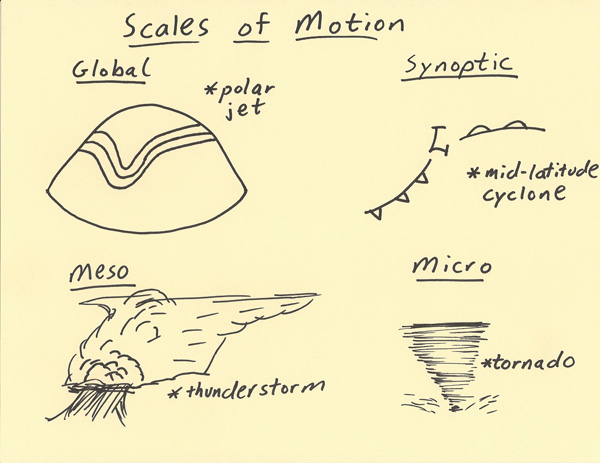 Scales of Motion
Global
*polar
jet
Synoptic
L
*mid-latitude
cyclone
Meso
*thunderstorm
Micro
*tornado